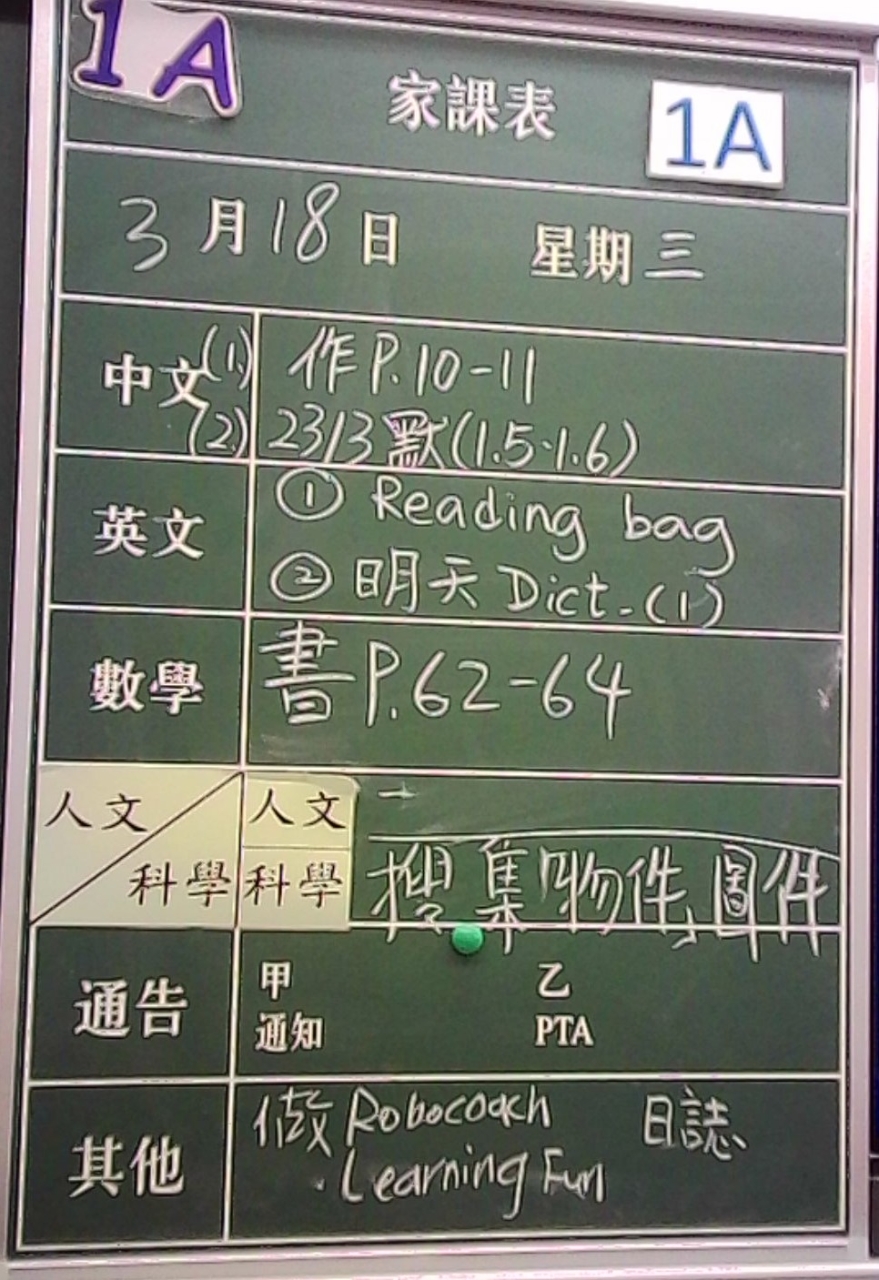 1A
家課表 1A
3月18日 星期三
中文(1) 作P.10-11
(2) 23/3默(1.5-1.6)
英文 ① Reading bag
② 明天 Dict.(1)
數學 書P.62-64
人文 人文 一
科學 科學 搜集物件,圖件
通告 甲 乙
通知 PTA
其他 做 Robocoach 日誌
Learning Fun